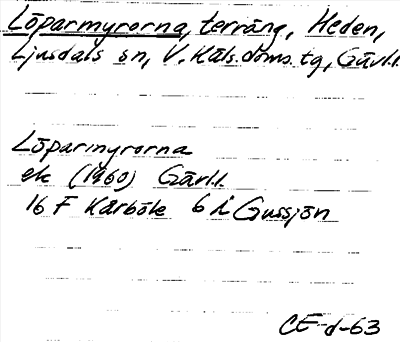 Löparmyrorna, terräng, Heden,
Ljusdals sn, V. Häls. doms. tg, Gävl.l.
Löparmyrorna
ek (1960) Gävl.l.
16 F Kårböle 6 i Gussjön
CE-d-63